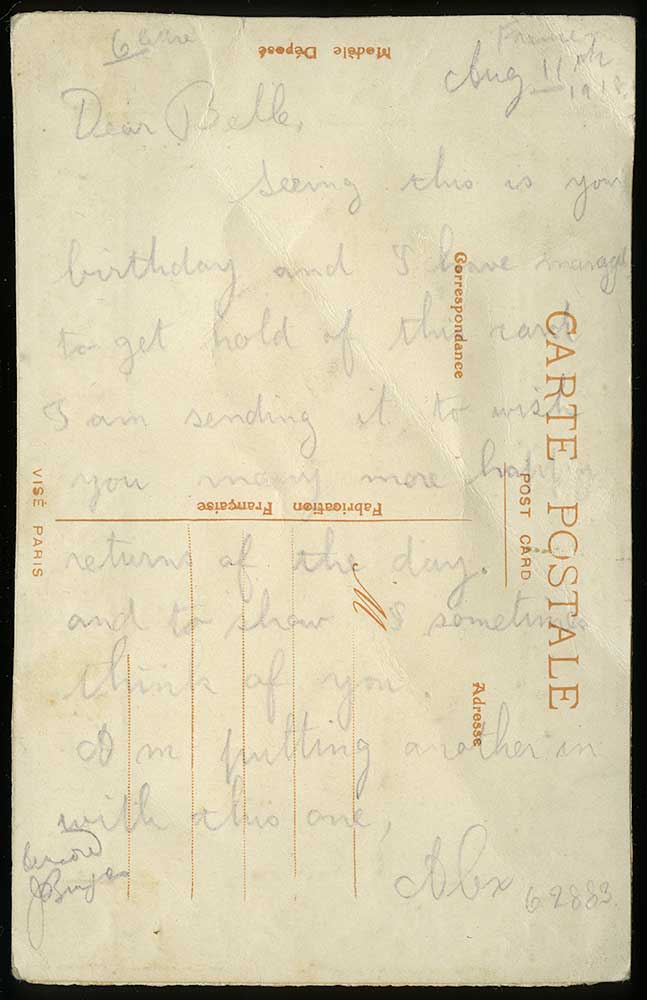 Modèle Déposé
France
Aug 11th
1918.
Dear Belle,
Seeing this is your
birthday and I have managed
to get hold of this card
I am sending it to wish
you many more happy
returns of the day.
and to show I sometimes
think of you.
I'm putting another in
with this one,
Alex
62883.
CARTE POSTALE
POST CARD
Correspondance
Adresse
Fabrication Française
VISÉ PARIS
M